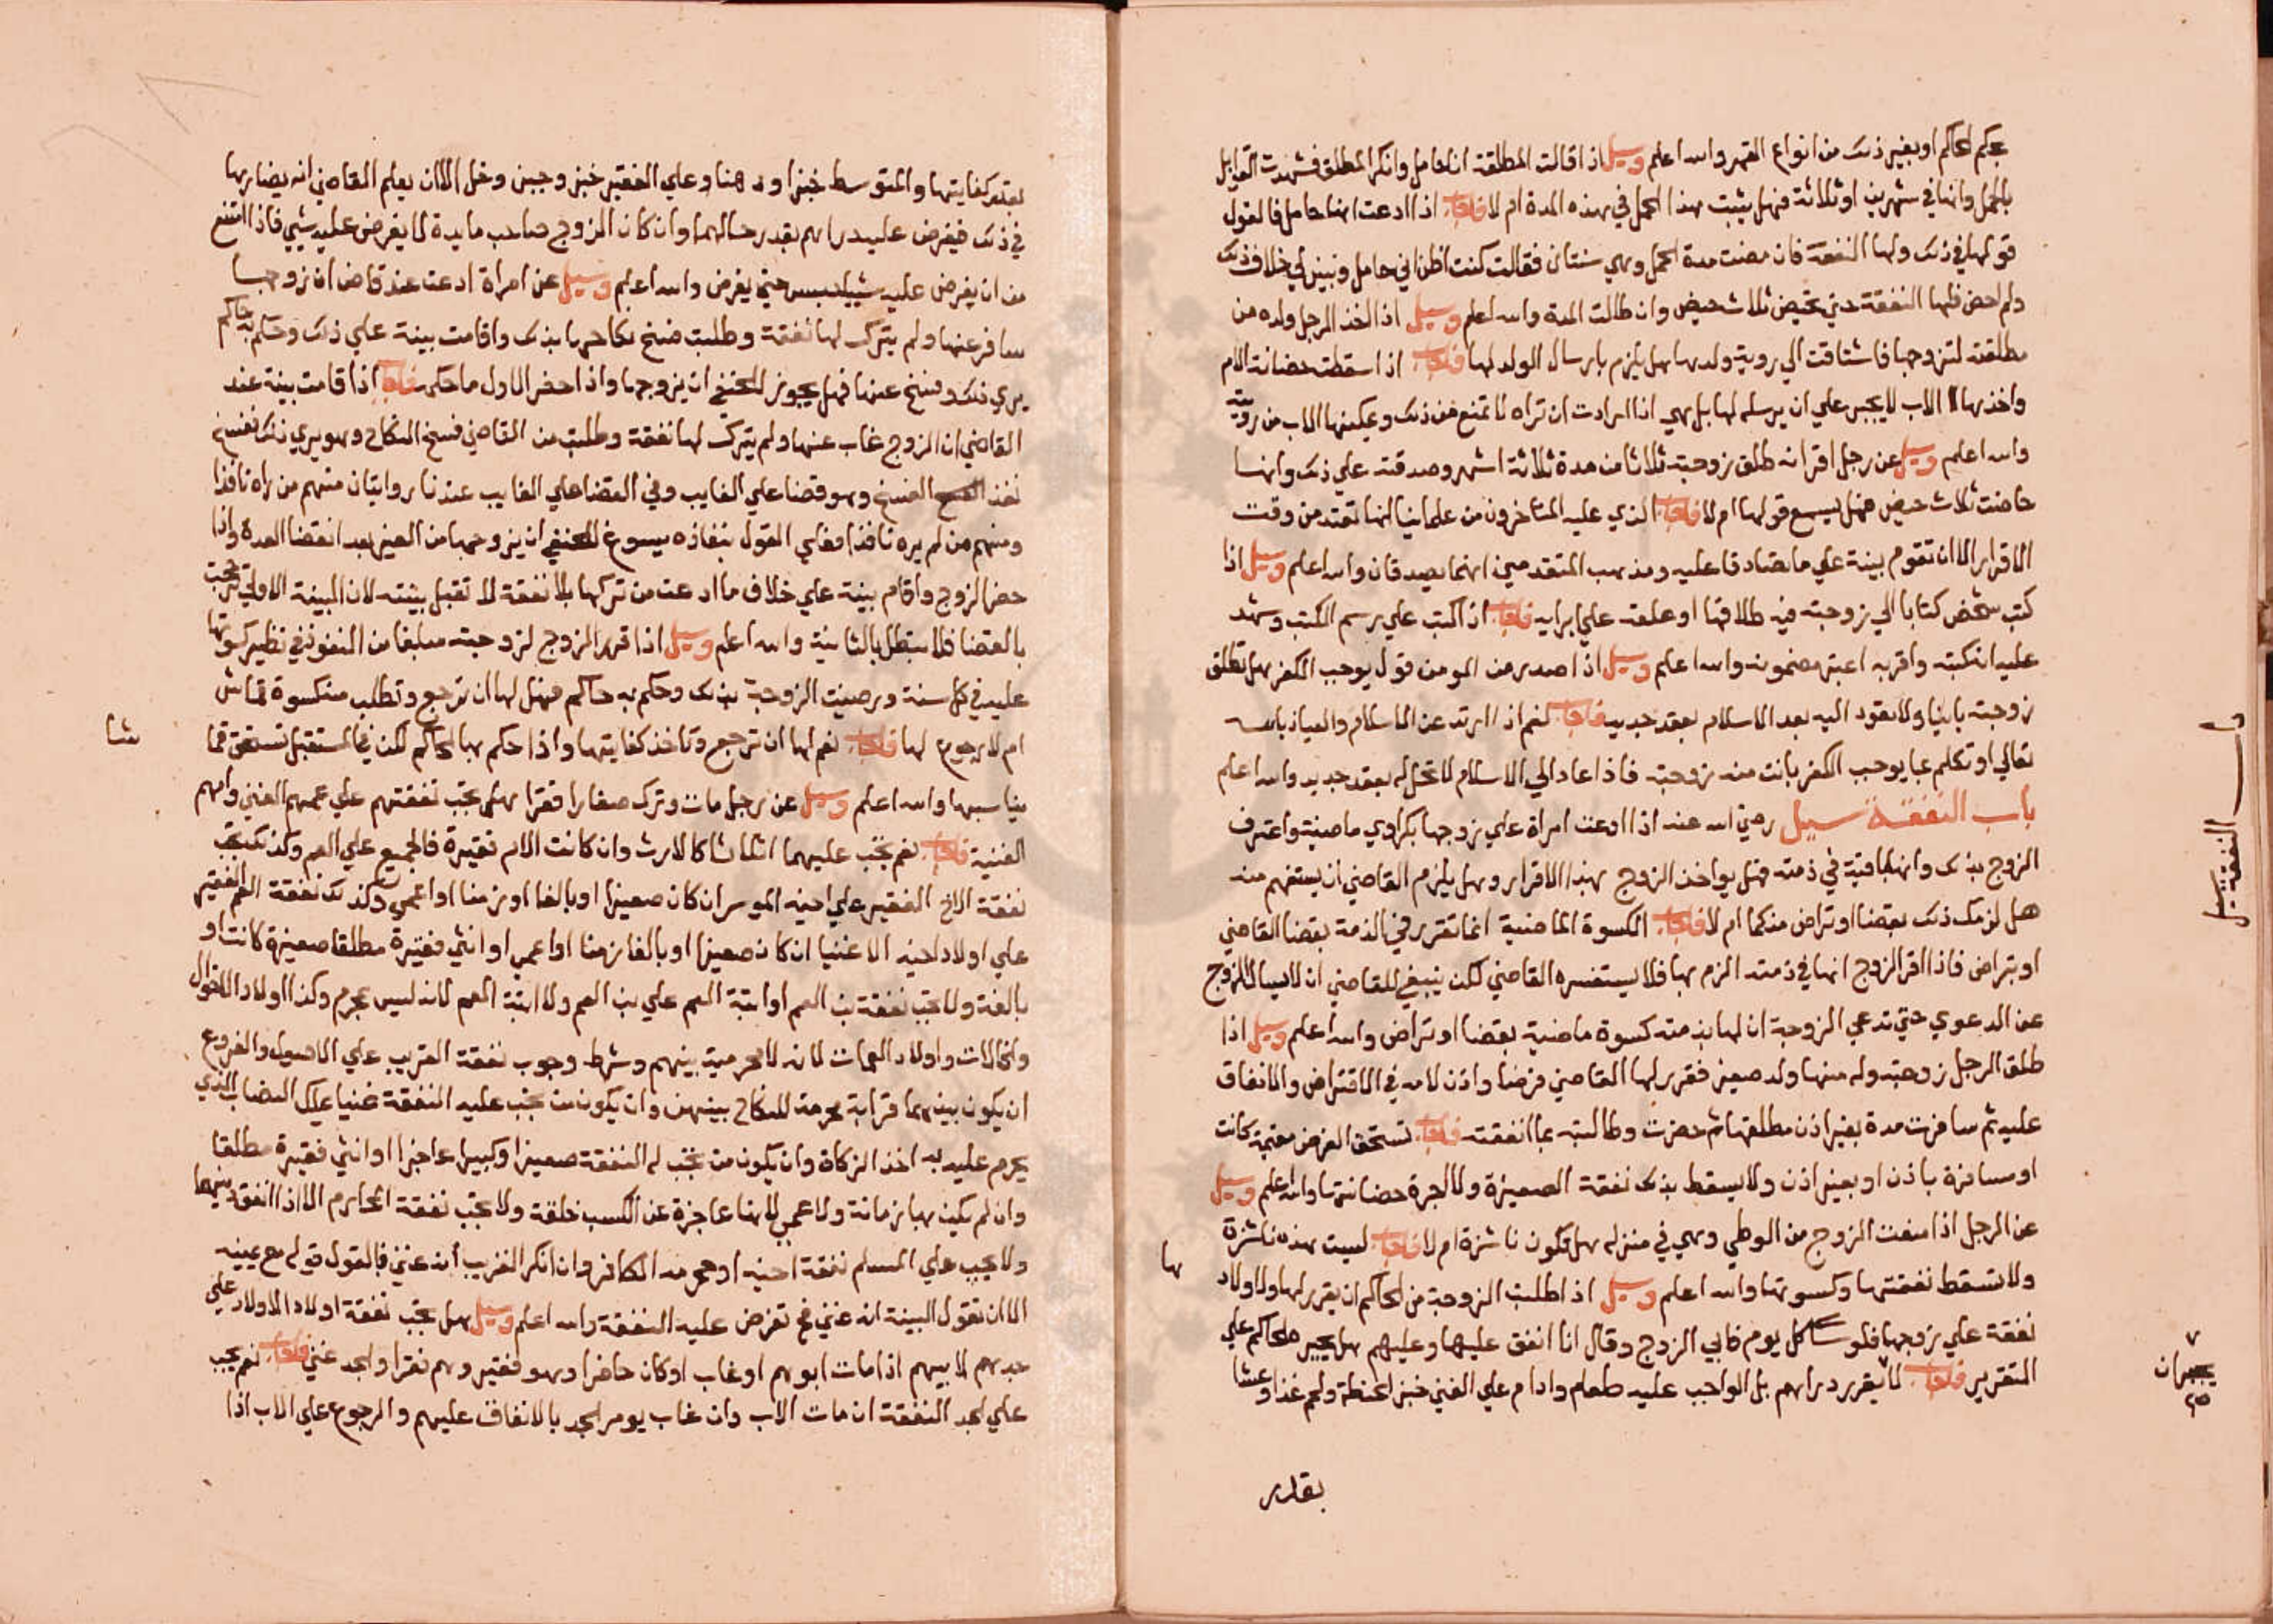 بحكم الحاكم او بغير ذلك من انواع القهر والله اعلم وسيل اذا قالت المطلقة انا حامل وانكر المطلق فشهدت القوابل
بالحمل وانها في شهرين او ثلاثة فهل يثبت هذا الحمل في هذه المدة ام لا فاجاب اذا ادعت انها حامل فالقول
قولها في ذلك ولها النفقة فان مضت مدة الحمل وهي سنتان فقالت كنت اظن اني حامل وتبين لي خلاف ذلك
ولم احض فلها النفقة حتي تحيض ثلاث حيض وان طالت المدة والله اعلم وسيل اذا اخذ الرجل ولده من
مطلقته لتزوجها فاشتاقت الي روية ولدها هل يلزم بارسال الولد لها فاجاب اذا سقطت حضانة الام
واخذها الاب لا يجبر علي ان يرسله لها بل هي اذا ارادت ان تراه لا تمنع من ذلك ويمكنها الاب من رويته
والله اعلم وسيل عن رجل اقر انه طلق زوجته ثلاثا من مدة ثلاثة اشهر وصدقته علي ذلك وانها
حاضت ثلاث حيض فهل يسمع قولها ام لا فاجاب الذي عليه المتاخرون من علماينا انها تعتد من وقت
الاقرار الا ان تقوم بينة علي ما تصادقا عليه ومذهب المتقدمين انهما يصدقان والله اعلم وسيل اذا
كتب شخص كتابا الي زوجته فيه طلاقها او علقه علي ابرايه فاجاب اذا كتب علي رسم الكتب وشهد
عليه انه كتبه واقر به اعتبر مضمونه والله اعلم وسيل اذا صدر من المومن قول يوجب الكفر هل تطلق
زوجته باينا ولا تعود اليه بعد الاسلام بعقد جديد فاجاب نعم اذا ارتد عن الاسلام والعياذ بالله
تعالي او تكلم بما يوجب الكفر بانت منه زوجته فاذا عاد الي الاسلام لا تحل له بعقد جديد والله اعلم
باب النفقة سيل رضي الله عنه اذا ادعت امراة علي زوجها بكراوي ماضية واعترف
الزوج بذلك وانها باقية في ذمته فهل يواخذ الزوج بهذا الاقرار وهل يلزم القاضي ان يستفهم منه
هل لزمك ذلك بقضا او تراض منكما ام لا فاجاب الكسوة الماضية انما تقرر في الذمة بقضا القاضي
او بتراض فاذا اقر الزوج انها في ذمته الزم بها فلا يستفسره القاضي لكن ينبغي للقاضي ان لا يسال الزوج
عن الدعوي حتي تدعي الزوجة ان لها بذمته كسوة ماضية بقضا او تراض والله اعلم وسيل اذا
طلق الرجل زوجته وله منها ولد صغير فقرر لها القاضي فرضا واذن لامه في الاقتراض والانفاق
عليه ثم سافرت مدة بغير اذن مطلقها ثم حضرت وطالبته بما انفقته فاجاب تستحق الفرض مقيمة كانت
او مسافرة باذن او بغير اذن ولا يسقط بذلك نفقة الصغيرة ولا اجرة حضانتها والله اعلم وسيل
عن الرجل اذا منعت الزوج من الوطي وهي في منزله هل تكون ناشزة ام لا فاجاب ليست بهذه ناشزة
ولا تسقط نفقتها وكسوتها والله اعلم وسيل اذا طلبت الزوجة من الحاكم ان يقرر لها ولاولادها
نفقة علي زوجها فلوسا كل يوم فابي الزوج وقال انا انفق عليها وعليهم هل يجبره الحاكم علي
التقرير فاجاب لا يقرر دراهم بل الواجب عليه طعام وادام علي الغني خبز الحنطة ولحم غدا وعشا
بقدر
باب النفقة سيل
بقدر كفايتها والمتوسط خبزا ودهنا وعلي الفقير خبز وجبن وخل الا ان يعلم القاضي انه يضارها
في ذلك فيفرض عليه دراهم بقدر حالهما وان كان الزوج صاحب مايدة لا يفرض عليه شيي فاذا امتنع
من ان يفرض عليه شيا حبس حتي يفرض والله اعلم وسيل عن امراة ادعت عند قاض ان زوجها
سافر عنها ولم يترك لها نفقة وطلبت فسخ نكاحها بذلك واقامت بينة علي ذلك وحكم به حاكم
يري ذلك وفسخ عنها فهل يجوز للحنفي ان يزوجها واذا حضر الاول ما حكمه فاجاب اذا قامت بينة عند
القاضي ان الزوج غاب عنها ولم يترك لها نفقة وطلبت من القاضي فسخ النكاح وهو يري ذلك ففسخ
نفذ الفسخ وهو قضا علي الغايب وفي القضا علي الغايب عندنا روايتان منهم من راه نافذا
ومنهم من لم يره نافذا فعلي القول بنفاذه يسوغ للحنفي ان يزوجها من الغير بعد انقضا العدة واذا
حضر الزوج واقام بينة علي خلاف ما ادعت من تركها بلا نفقة لا تقبل بينته لان البينة الاولي ترجحت
بالقضا فلا تبطل بالثانية والله اعلم وسيل اذا قرر الزوج لزوجته مبلغا من النقود في نظير كسوتها
عليه في كل سنة ورضيت الزوجة بذلك وحكم به حاكم فهل لها ان ترجع وتطلب منه كسوة قماش
ام لا رجوع لها فاجاب نعم لها ان ترجع وتاخذ كفايتها واذا حكم بها الحاكم لكن في المستقبل تستحق قماشا
يناسبها والله اعلم وسيل عن رجل مات وترك صغارا فقرا هل تجب نفقتهم علي عمهم الغني وامهم
الغنية فاجاب نعم تجب عليهما اثلاثا كالارث وان كانت الام فقيرة فالجميع علي العم وكذلك تجب
نفقة الاخ الفقير علي اخيه الموسر ان كان صغيرا او بالغا او زمنا او اعمي وكذلك نفقة العم الفقير
علي اولاد اخيه الاغنيا ان كان صغيرا او بالغا زمنا او اعمي او انثي فقيرة مطلقا صغيرة كانت او
بالغة ولا تجب نفقة بن العم او ابنة العم علي بن العم ولا ابنة العم لانه ليس بمحرم وكذا اولاد الاخوال
والخالات واولاد العمات لانه لا محرمية بينهم وشرط وجوب نفقة القريب علي الاصول والفروع
ان يكون بينهما قرابة محرمة للنكاح بينهن وان يكون من تجب عليه النفقة غنيا يملك النصاب الذي
يحرم عليه به اخذ الزكاة وان يكون من تجب له النفقة صغيرا وكبيرا عاجزا او انثي فقيرة مطلقا
وان لم يكن بها زمانة ولا عمي لانها عاجزة عن الكسب خلقة ولا تجب نفقة المحارم الا اذا اتفق دينهما
ولا يجب علي المسلم نفقة اخيه او محرمه الكافر وان انكر القريب انه غني فالقول قوله مع يمينه
الا ان تقول البينة انه غني فتفرض عليه النفقة والله اعلم وسيل هل تجب نفقة اولاد الاولاد علي
جدهم لابيهم اذا مات ابوهم او غاب او كان حاضرا وهو فقير وهم فقرا والجد غني فاجاب نعم يجب
علي الجد النفقة ان مات الاب وان غاب يومر الجد بالانفاق عليهم والرجوع علي الاب اذا